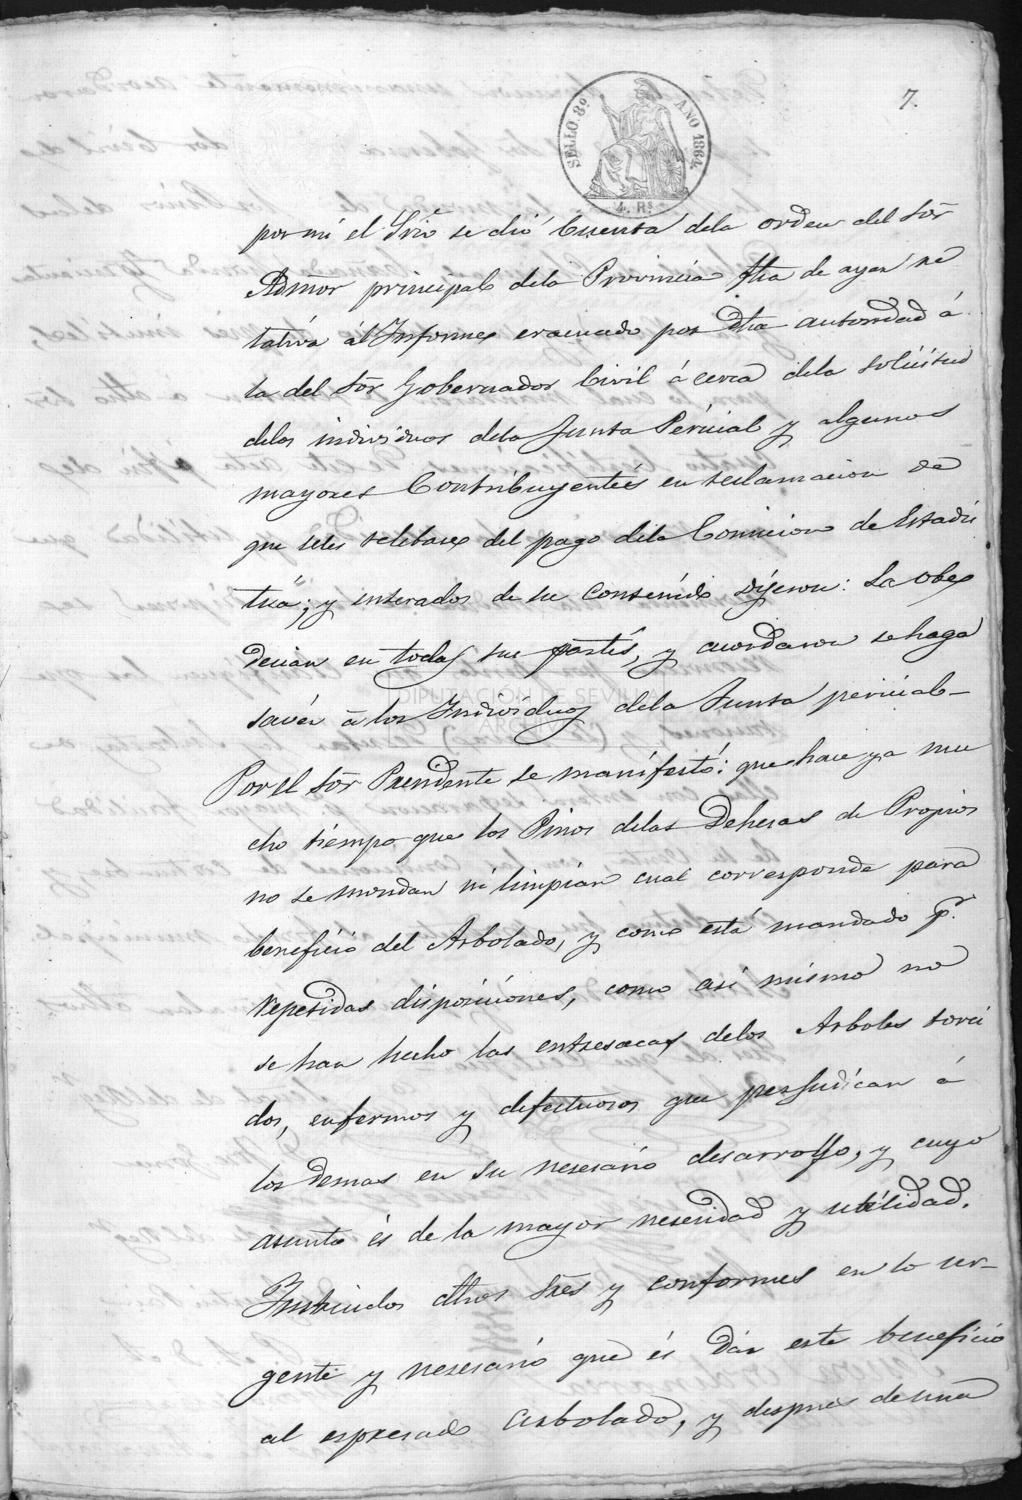 7.
SELLO 8º AÑO 1864
4. Rs
por mi el Srio se dió Cuenta dela orden del Sór
Admor principal dela Provincia fha de ayer re
lativa ál Informe evacuado por dha autoridad á
la del Sór Gobernador Civil á cerca dela solicitud
delos individuos dela Junta Péricial y algunos
mayores Contribuyentés en reclamacion de
que seles relebase del pago dela Comision de Estadis
tica; y enterados de su contenído díjeron: La obe
decian en todas sus partés, y acordaron se haga
savér á los Indivíduos dela Junta pericial-
Por el Sór Presidente se manífestó: que hace ya mu
cho tiempo que los Pinos delas Dehesas de Propios
no se mondan ni limpían cual corresponde para
beneficio del Arbolado, y como está mandado pr.
repetidas disposiciones, como así mismo no
se han hecho las entresacas delos Arboles torci
dos, enfermos y defectuosos que perjudícan á
los demas en su nesesario desarrollo, y cuyo
asunto és de la mayor nesesidad y utilidad.
Instruidos dhos Sres y conformes en lo ur-
gente y nesesario que és dár este beneficio
al espresado Arbolado, y despues de una
DIPUTACIÓN DE SEVILLA
ARCHIVO